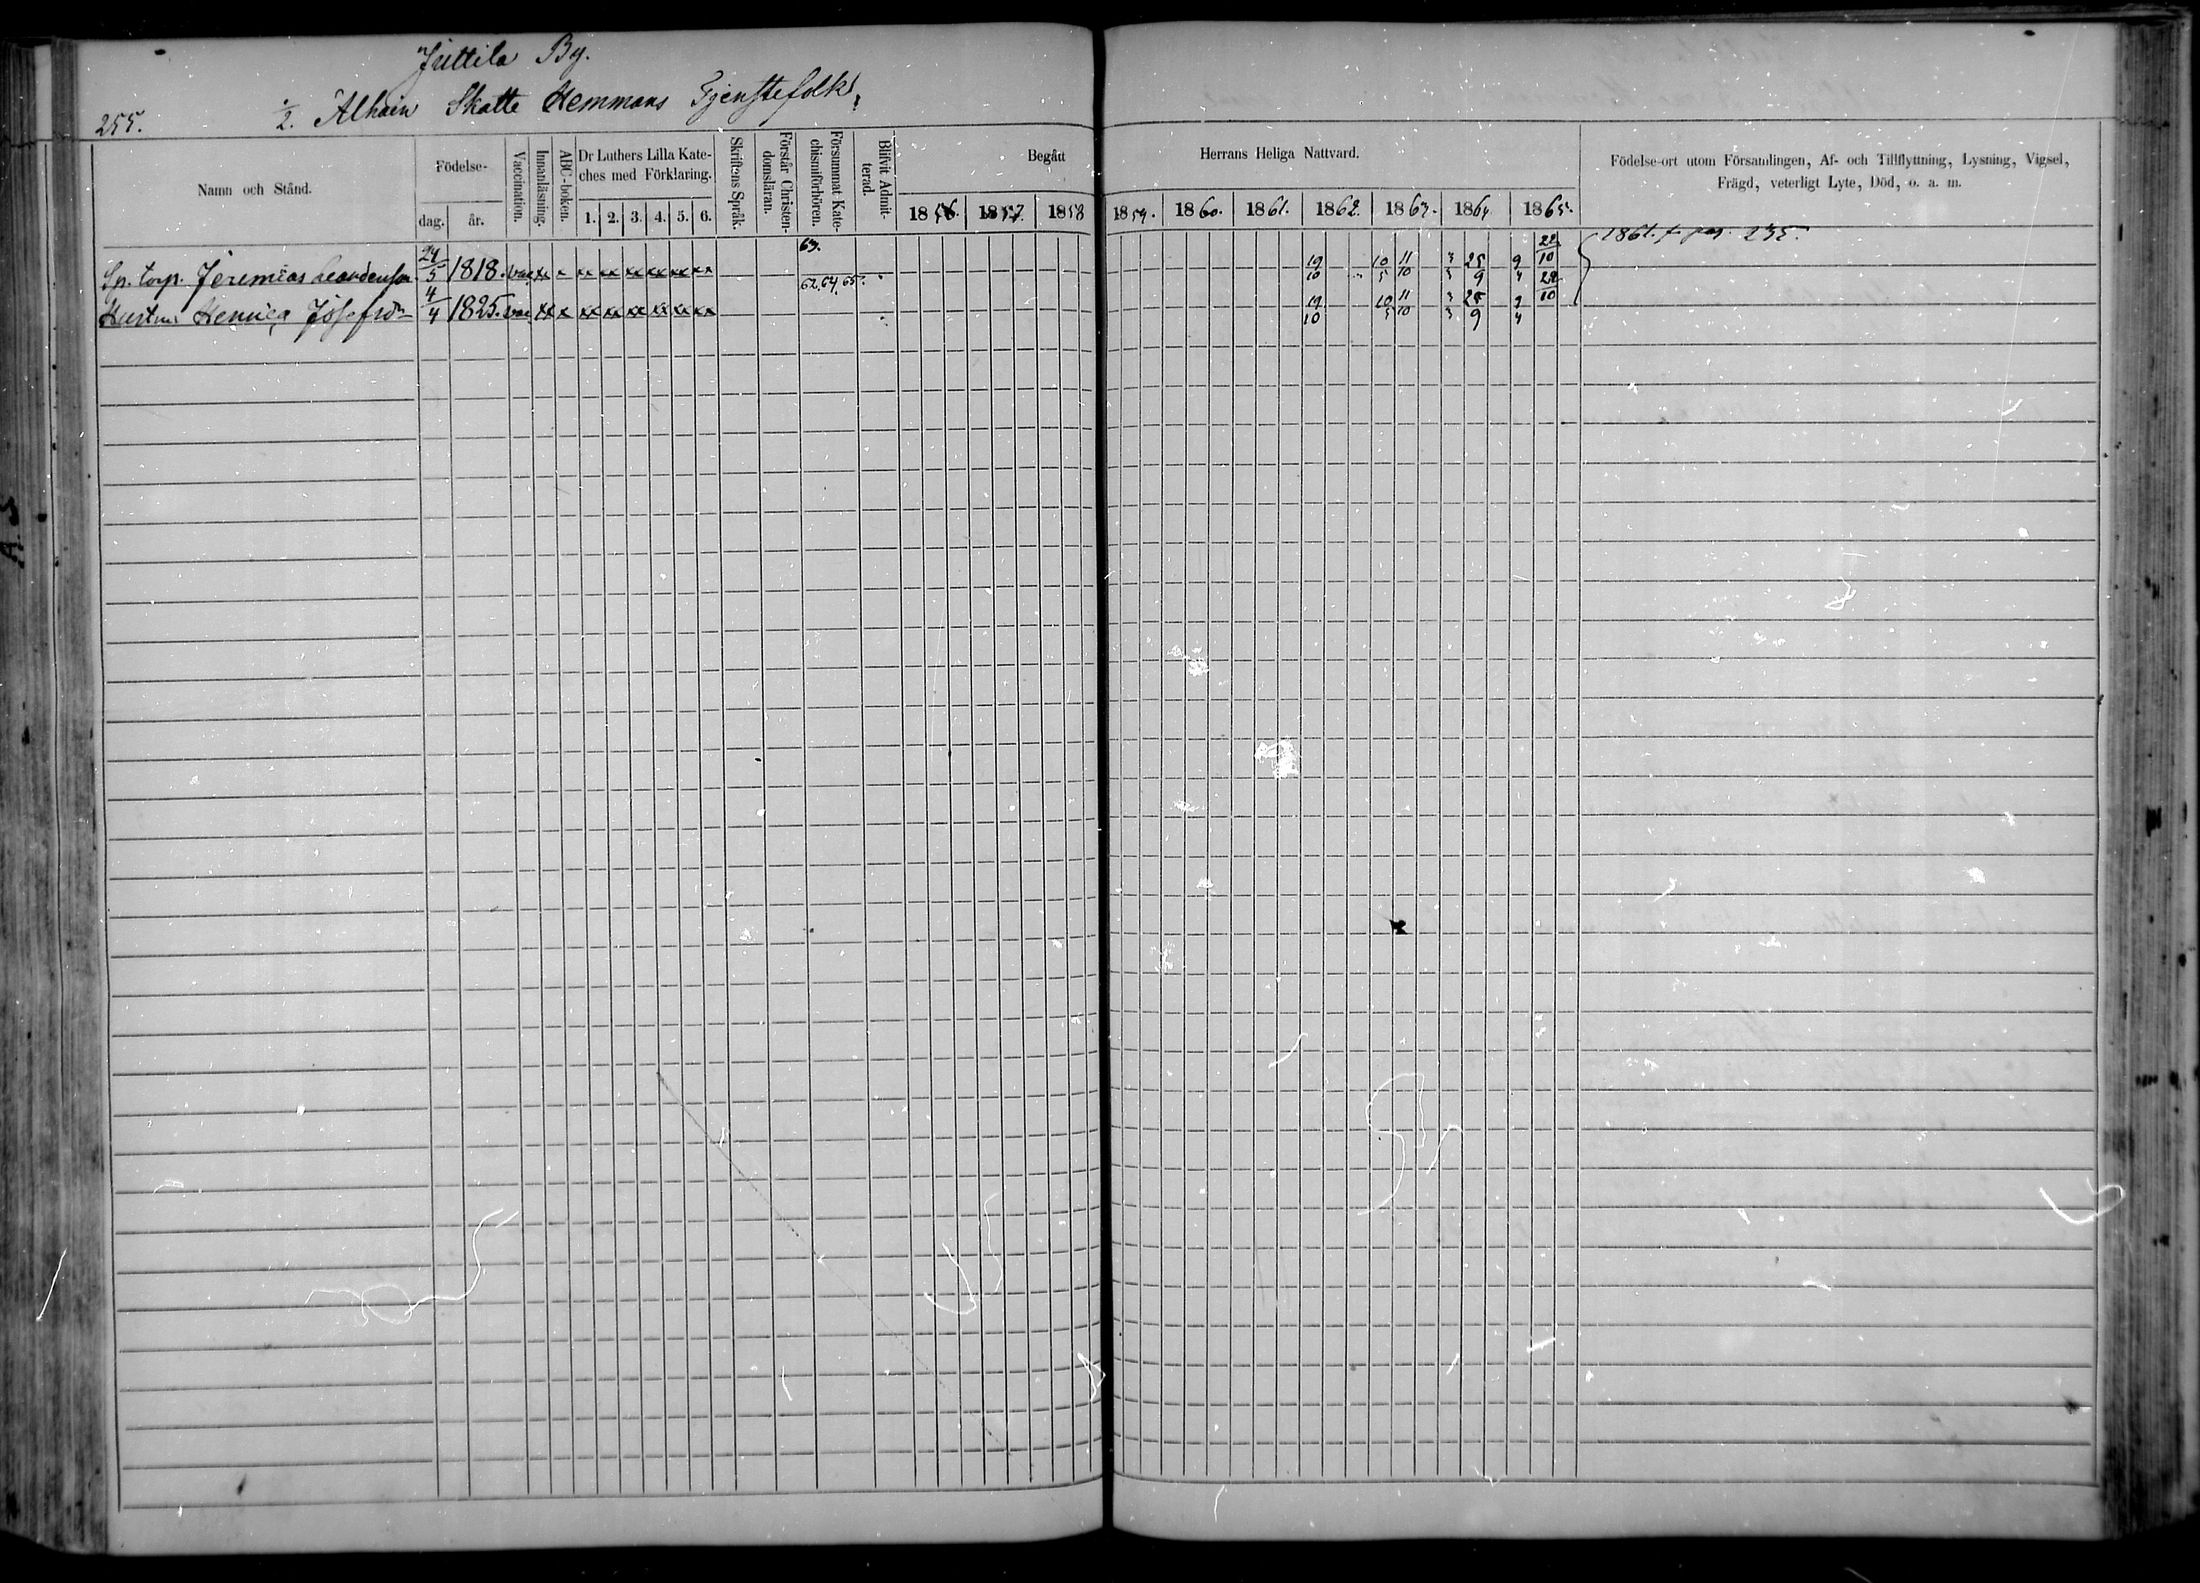 Juttila By.
1/2. Alhain Skatte Hemmans Tjenstefolk
255.
Namn och Stånd.
Födelse-
dag.
år.
Vaccination.
Innanläsning.
ABC-boken.
Dr Luthers Lilla Kate-
ches med Förklaring.
1. 2. 3. 4. 5. 6.
Skriftens Språk.
Förstår Christen-
domsläran.
Försummat Kate-
chismiförhören.
Blifvit Admit-
terad.
Begått
Herrans Heliga Nattvard.
1856. 1857. 1858 1859. 1860. 1861. 1862. 1863. 1864 1865.
Födelse-ort utom Församlingen, Af- och Tillflyttning, Lysning, Vigsel,
Frägd, veterligt Lyte, Död, o. a. m.
63.
Sp. torp. Jeremias Leandersson 24/5 1818. vac xx x xx xx xx xx xx xx 19/10 10/5 11/10 3/3 25/9 9/4 22/10 1861. f. pag. 235.
62. 64. 65.
Hustru Henrica Josefsdr 4/4 1825. vac xx x xx xx xx xx xx xx 19/10 10/5 11/10 3/3 25/9 9/4 22/10